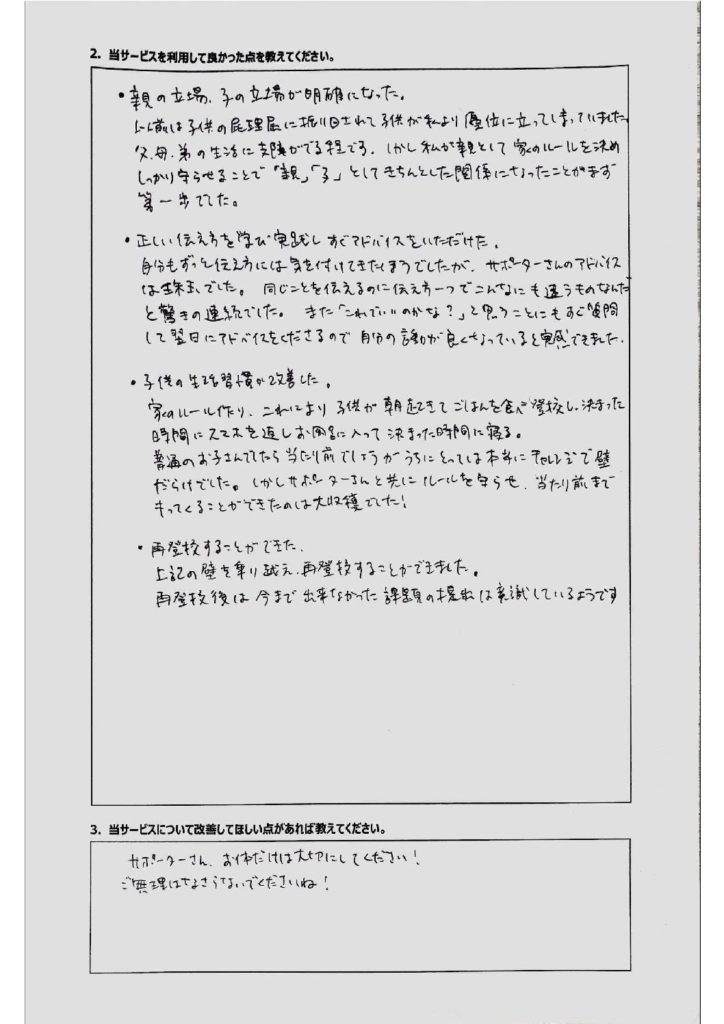 2. 当サービスを利用して良かった点を教えてください。
・親の立場、子の立場が明確になった。
以前は子供の屁理屈に振り回されて子供が私より優位に立ってしまっていました。
父、母、弟の生活に支障がでる程です。しかし私が親として家のルールを決め
しっかり守らせることで「親」「子」としてきちんとした関係になったことがまず
第一歩でした。
・正しい伝え方を学び実践しすぐアドバイスをいただけた。
自分もずっと伝え方には気を付けてきたほうでしたが、サポーターさんのアドバイス
は珠玉でした。同じことを伝えるのに伝え方一つでこんなにも違うものなんだ
と驚きの連続でした。また「これでいいのかな?」と思うことにもすぐ質問
して翌日にアドバイスをくださるので自分の言動が良くなっていると実感できました。
・子供の生活習慣が改善した。
家のルール作り、これにより子供が朝起きてごはんを食べ登校し、決まった
時間にスマホを返しお風呂に入って決まった時間に寝る。
普通のお子さんでしたら当たり前でしょうがうちにとっては本当にチャレンジで壁
だらけでした。しかしサポーターさんと共にルールを守らせ、当たり前まで
もってくることができたのは大収穫でした!
・再登校することができた。
上記の壁を乗り越え、再登校することができました。
再登校後は今まで出来なかった課題の提出は意識しているようです
3. 当サービスについて改善してほしい点があれば教えてください。
サポーターさん、お体だけは大切にしてください!
ご無理はなさらないでくださいね!